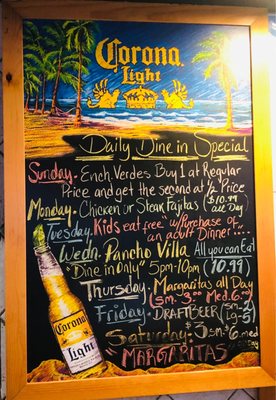 Corona
Light
Daily Dine in Special
Sunday - Ench. Verdes Buy 1 at Regular
Price and get the second at ½ Price
Monday - Chicken or Steak Fajitas ($10.99
all Day)
Tuesday Kids eat free" w/Purchase of
an adult Dinner!...
Wedn. Pancho Villa All you can Eat
"Dine in Only" 5pm-10pm (10.99)
Thursday - Margaritas all Day
(sm. $3.00 Med. 6.00)
Friday - DRAFT BEER (sm-
Lg-5)
Saturday $3 sm $6 med
"MARGARITAS
Corona
Light